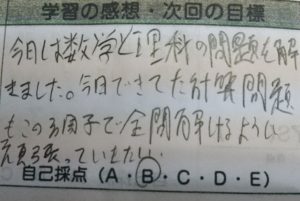 学習の感想・次回の目標
今日は数学と理科の問題を解
きました。今日できてた計算問題
もこの調子で全問解けるように
頑張っていきたい
自己採点（A・B・C・D・E）